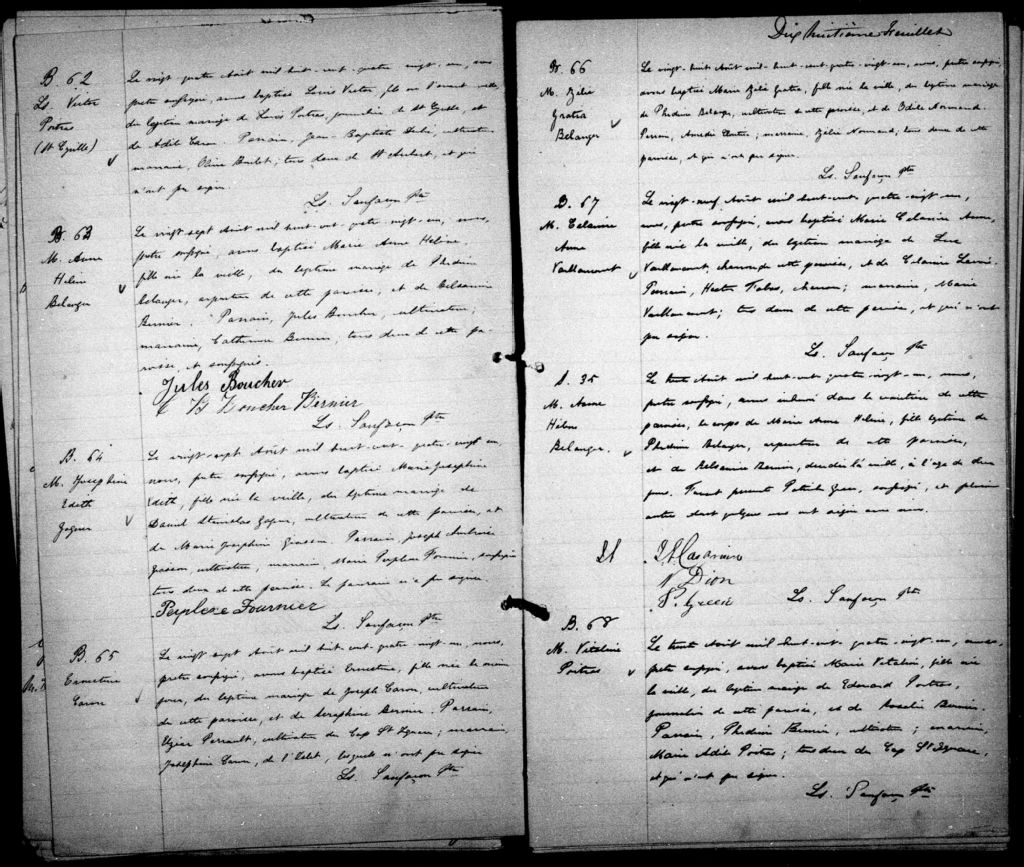 B. 62
Ls. Victor
Potras
(St Cyrille)
Le vingt quatre Août mil huit-cent-quatre-vingt-un, nous
prêtre soussigné, avons baptisé Louis Victor, fils né l'avant veille
du légitime mariage de Louis Potras, journalier de St Cyrille et
de Adèle Caron. Parrain, Jean-Baptiste
marraine, tous deux de St Aubert, et qui
n'ont pu signer.
Ls. Sanfaçon Ptre
B. 63
M. Anne
Hélène
Belanger
Le vingt sept Août mil huit-cent-quatre-vingt-un, nous,
prêtre soussigné, avons baptisé Marie Anne Hélène,
fille née la veille, du légitime mariage de Phidime
Belanger, arpenteur de cette paroisse, et de Belsamine
Bernier. Parrain, Jules Boucher, cultivateur;
marraine, Catherine Bernier, tous deux de cette pa-
roisse, et soussignés.
Jules Boucher
C B Boucher Bernier
Ls. Sanfaçon Ptre
B. 64
M. Josephine
Edith
Gagner
Le vingt sept Août mil huit-cent-quatre-vingt un,
nous, prêtre soussigné, avons baptisé Marie Josephine
Edith, fille née la veille, du légitime mariage de
Daniel Stanislas Gagner, cultivateur de cette paroisse, et
de Marie Josephine Parrain, Joseph
cultivateur, marraine, Marie Perplexe Fournier, soussignée
tous deux de cette paroisse. Le parrain n'a pu signer.
Perplexe Fournier
Ls. Sanfaçon Ptre
B. 65
Ernestine
Caron
Le vingt sept Août mil huit cent-quatre-vingt-un, nous,
prêtre soussigné, avons baptisé Ernestine, fille née le même
jour, du légitime mariage de Joseph Caron, cultivateur
de cette paroisse, et de Seraphine Bernier. Parrain,
Perrault, cultivateur du Cap St Ignace; marraine,
Josephine Caron, de l'Islet, lesquels n'ont pu signer
Ls. Sanfaçon Ptre
Dix huitième feuillet
B. 66
M. Zélie
Gratia
Belanger
Le vingt-huit Août mil huit-cent-quatre-vingt-un, nous, prêtre soussigné,
avons baptisé Marie Zélie Gratia, fille née la veille, du légitime mariage
de Phidime Belanger, cultivateur de cette paroisse, et de Odile Normand.
Parrain, Amédée marraine, Zélie Normand, tous deux de cette
paroisse, et qui n'ont pu signer.
Ls. Sanfaçon Ptre
B. 67
M. Célanire
Anne
Vaillancourt
Le vingt-neuf Août mil huit-cent-quatre-vingt-un,
nous, prêtre soussigné, avons baptisé Marie Célanire Anne,
fille née la veille, du légitime mariage de Luc
Vaillancourt, de cette paroisse, et de Célanire
Parrain, Hector marraine, Marie
Vaillancourt; tous deux de cette paroisse, et qui n'ont
pu signer.
Ls. Sanfaçon Ptre
S. 35
M. Anne
Hélène
Belanger.
Le trente Août mil huit-cent-quatre-vingt-un, nous,
prêtre soussigné, avons inhumé dans le cimetière de cette
paroisse, le corps de Marie Anne Hélène, fille légitime de
Phidime Belanger, arpenteur de cette paroisse,
et de Belsamine Bernier, décédée la veille, à l'âge de deux
jours. Furent présents Patrick Green, soussigné, et plusieurs
autres dont quelques uns ont signé avec nous.
N Dion
P. Green
Ls. Sanfaçon Ptre
B. 68
M. Vitaline
Potras
Le trente Août mil huit-cent-quatre-vingt-un, nous,
prêtre soussigné, avons baptisé Marie Vitaline, fille née
la veille, du légitime mariage de Edouard Potras,
journalier de cette paroisse, et de Roselie Bernier.
Parrain, Phidime Bernier, cultivateur; marraine,
Marie Adèle Potras; tous deux de Cap St Ignace,
et qui n'ont pu signer.
Ls. Sanfaçon Ptre